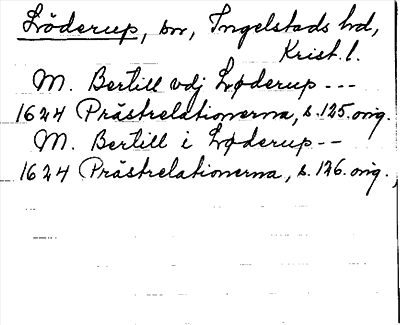 Löderup, sn, Ingelstads hd,
Krist. l.
M. Bertill vdj Løderup ---
1624 Prästrelationerna, s. 125. orig.
M. Bertill i Løderup --
1624 Prästrelationerna, s. 126. orig.